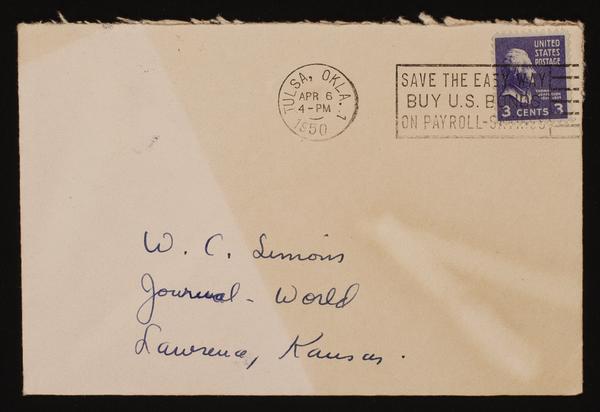 UNITED
STATES
POSTAGE
3 CENTS 3
TULSA, OKLA. 1
APR 6
4-PM
1950
SAVE THE EASY WAY
BUY U.S. BONDS
ON PAYROLL-SAVINGS
W. C. Simons
Journal - World
Lawrence, Kansas.